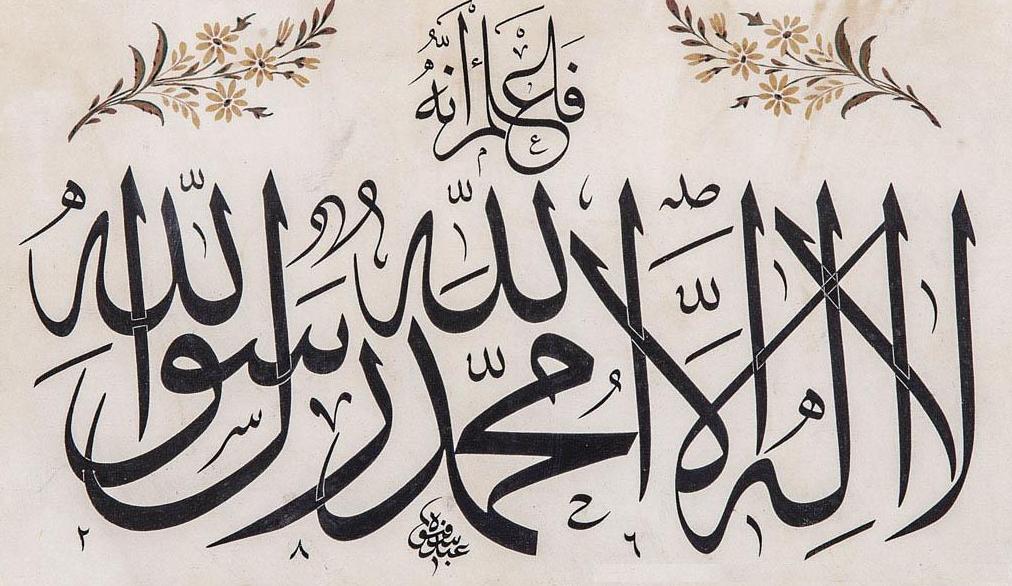 فاعلم أنه
لا إله إلا الله محمد رسول الله
٢ ٨ ٦ ١